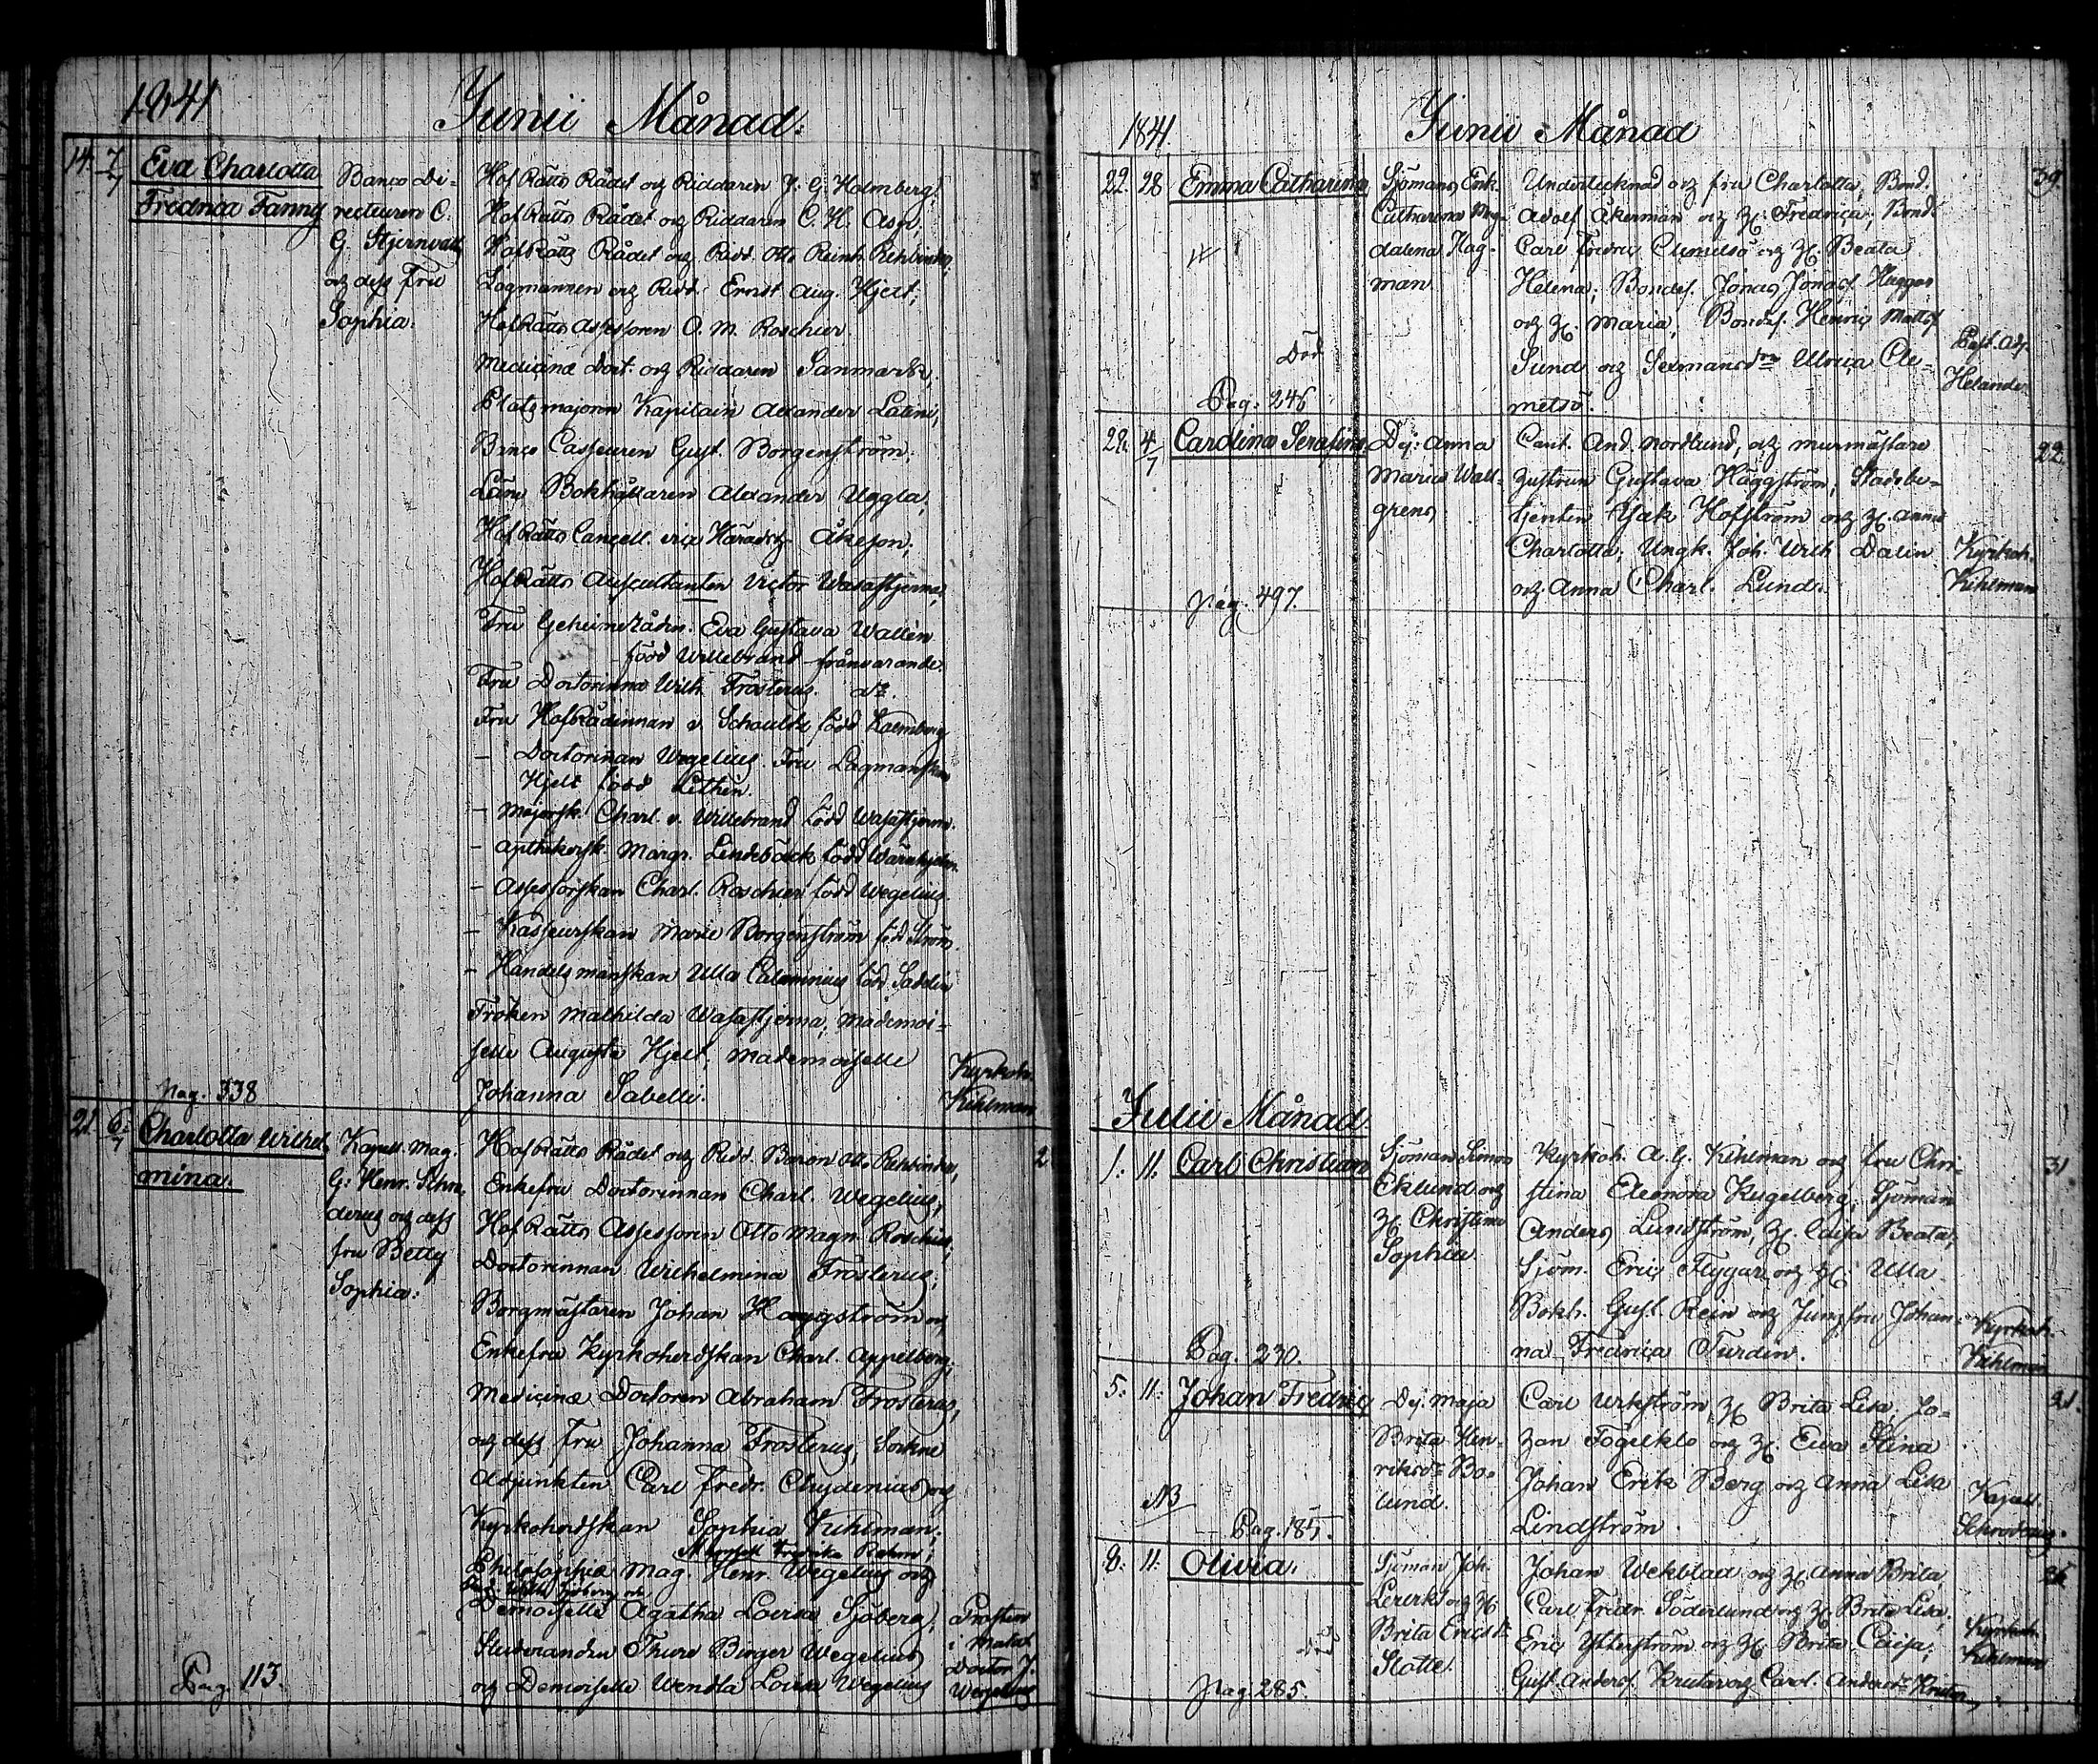 1841 Junii Månad.
14. 7/7 Eva Charlotta
Fredrica Fanny
Banco Di-
recteuren C.
G. Stjernvall
och dess Fru
Sophia.
Hof Rätts Rådet och Riddaren J. G. Holmberg;
Hof Rätts Rådet och Riddaren C. H. Asp;
Hof Rätts Rådet och Ridd. Otto Reinh. Rehbinder,
Lagmannen och Ridd. Ernst Aug. Hjelt;
HofRätts Assessoren O. M. Roschier
Medicinæ Doct. och Riddaren Sanmark;
Platzmajoren Kapitain Alexander Latini,
Banco Casseuren Gust. Borgenström;
Läns Bokhållaren Alexander Uggla,
Hof Rätts Cancell. vice Häradsh. Åkeson;
Hof Rätts Auscultanten Victor Wasastjerna,
Fru Geheimerådin. Eva Gustava Wallén
född Willebrand frånvarande.
Fru Doctorinna Wilh. Frosterus. do.
Fru HofRådinnan v. Schoultz född Holmberg
— Doctorinnan Wegelius. Fru Lagmanskan
Hjelt född Lithén.
— Majorsk. Charl. v. Willebrand född Wasastjerna.
— Apthekarsk. Margr. Lindebäck född
— Assessorskan Charl. Roschier född Wegelius.
— Kasseurskan Marie Borgenström född Ström
— Handelsmanskan Ulla Calamnius född
Fröken Mathilda Wasastjerna, Mademoi-
selle Augusta Hjelt, Mademoiselle
Johanna Sabelli.
Kyrkoh.
Kihlman
Pag. 338
21. 6/7 Charlotta Wilhel-
mina.
Kapell. Mag.
G. Henr. Schro-
derus och dess
fru Betty
Sophia.
Hof Rätts Rådet och Ridd. Baron Otto Rehbinder,
Enkefru Doctorinnan Charl. Wegelius,
Hof Rätts Assessoren Otto Magn. Roschier,
Doctorinnan Wilhelmina Frosterus;
Borgmästaren Johan Häggström och
Enkefru Kyrkoherdskan Charl. Appelberg;
Medicinæ Doctoren Abraham Frosterus,
och dess fru Johanna Frosterus, Sockne
Adjunkten Carl Fredr. Chydenius och
Kyrkoherdskan Sophia Kihlman,
Mamsell Fredrika Rahm;
Philosophiæ Mag. Henr. Wegelius och
Demoiselle Agatha Lovisa Sjöberg;
Studeranden Thure Birger Wegelius
och Demoiselle Wendla Lovisa Wegelius
2
Prosten
i Malax
Doctor J.
Wegelius
Pag. 113.
1841. Junii Månad
22. 28 Emma Catharina
Sjömans Enk.
Catharina Mag-
dalena Hag-
man.
Undertecknad och fru Charlotta; Bond.
Adolf Åkerman och H. Fredrica; Bond.
Carl Fredric Clemetsö och H. Beata
Helena; Bondes. Jonas Jonass. Haggas
och H. Maria; Bondes. Henric Matts.
Sund och Sexmansdr Ulrica Cle-
metsö.
39
Past. Adj.
Helander
Död
Pag. 246
28. 4/7 Carolina Serafina
Pig. Anna
Maria Wall-
grens
Cant. And. Nordlund, och Murmästare
hustrun Gustava Häggström; Stadsbe-
tjenten Isak Hofström och H. Anna
Charlotta; Ungk. Joh. Wilh. Dalin
och Anna Charl. Lund.
22
Kyrkoh.
Kihlman
Pag. 497.
Julii Månad.
1. 11. Carl Christian
Sjöman Simon
Eklund och
H. Christina
Sophia.
Kyrkoh. A. G. Kihlman och fru Chri-
stina Eleonora Kugelberg; Sjöman
Anders Lundström, H. Caisa Beata;
Sjöm. Eric Flygar och H. Ulla
Bokh. Gust. Rein och Jungfru Johan-
na Fredrica Turdin.
31
Kyrkoh.
Kihlman
Pag. 230.
5. 11. Johan Fredric
Pig. Maja
Brita Hen-
riksdr Bo-
lund.
Carl Urkström, H. Brita Lisa, Jo-
han Fogelklo och H. Ewa Stina
Johan Erik Berg och Anna Lisa
Lindström.
21.
Kapell.
Schroderus.
NB
Pag. 185.
8. 11. Olivia.
Sjöman Joh.
och H.
Brita Ericsdr
Slotte.
Johan Wekblad och H. Anna Brita,
Carl Fredr. Söderlund och H. Brita Lisa,
Eric Ytterström och H. Brita Caisa;
Gust. Anders. Krutar och Carol. Andersdr
Kyrkoh.
Kihlman
Död
Pag. 285.